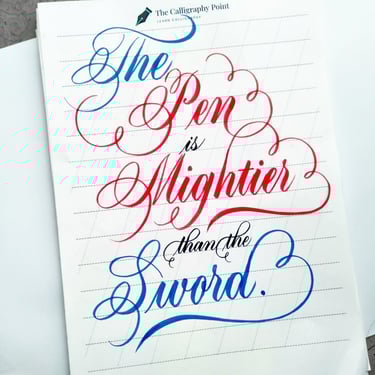 The Calligraphy Point
LEARN CALLIGRAPHY
The
Pen
is
Mightier
than the
Sword.